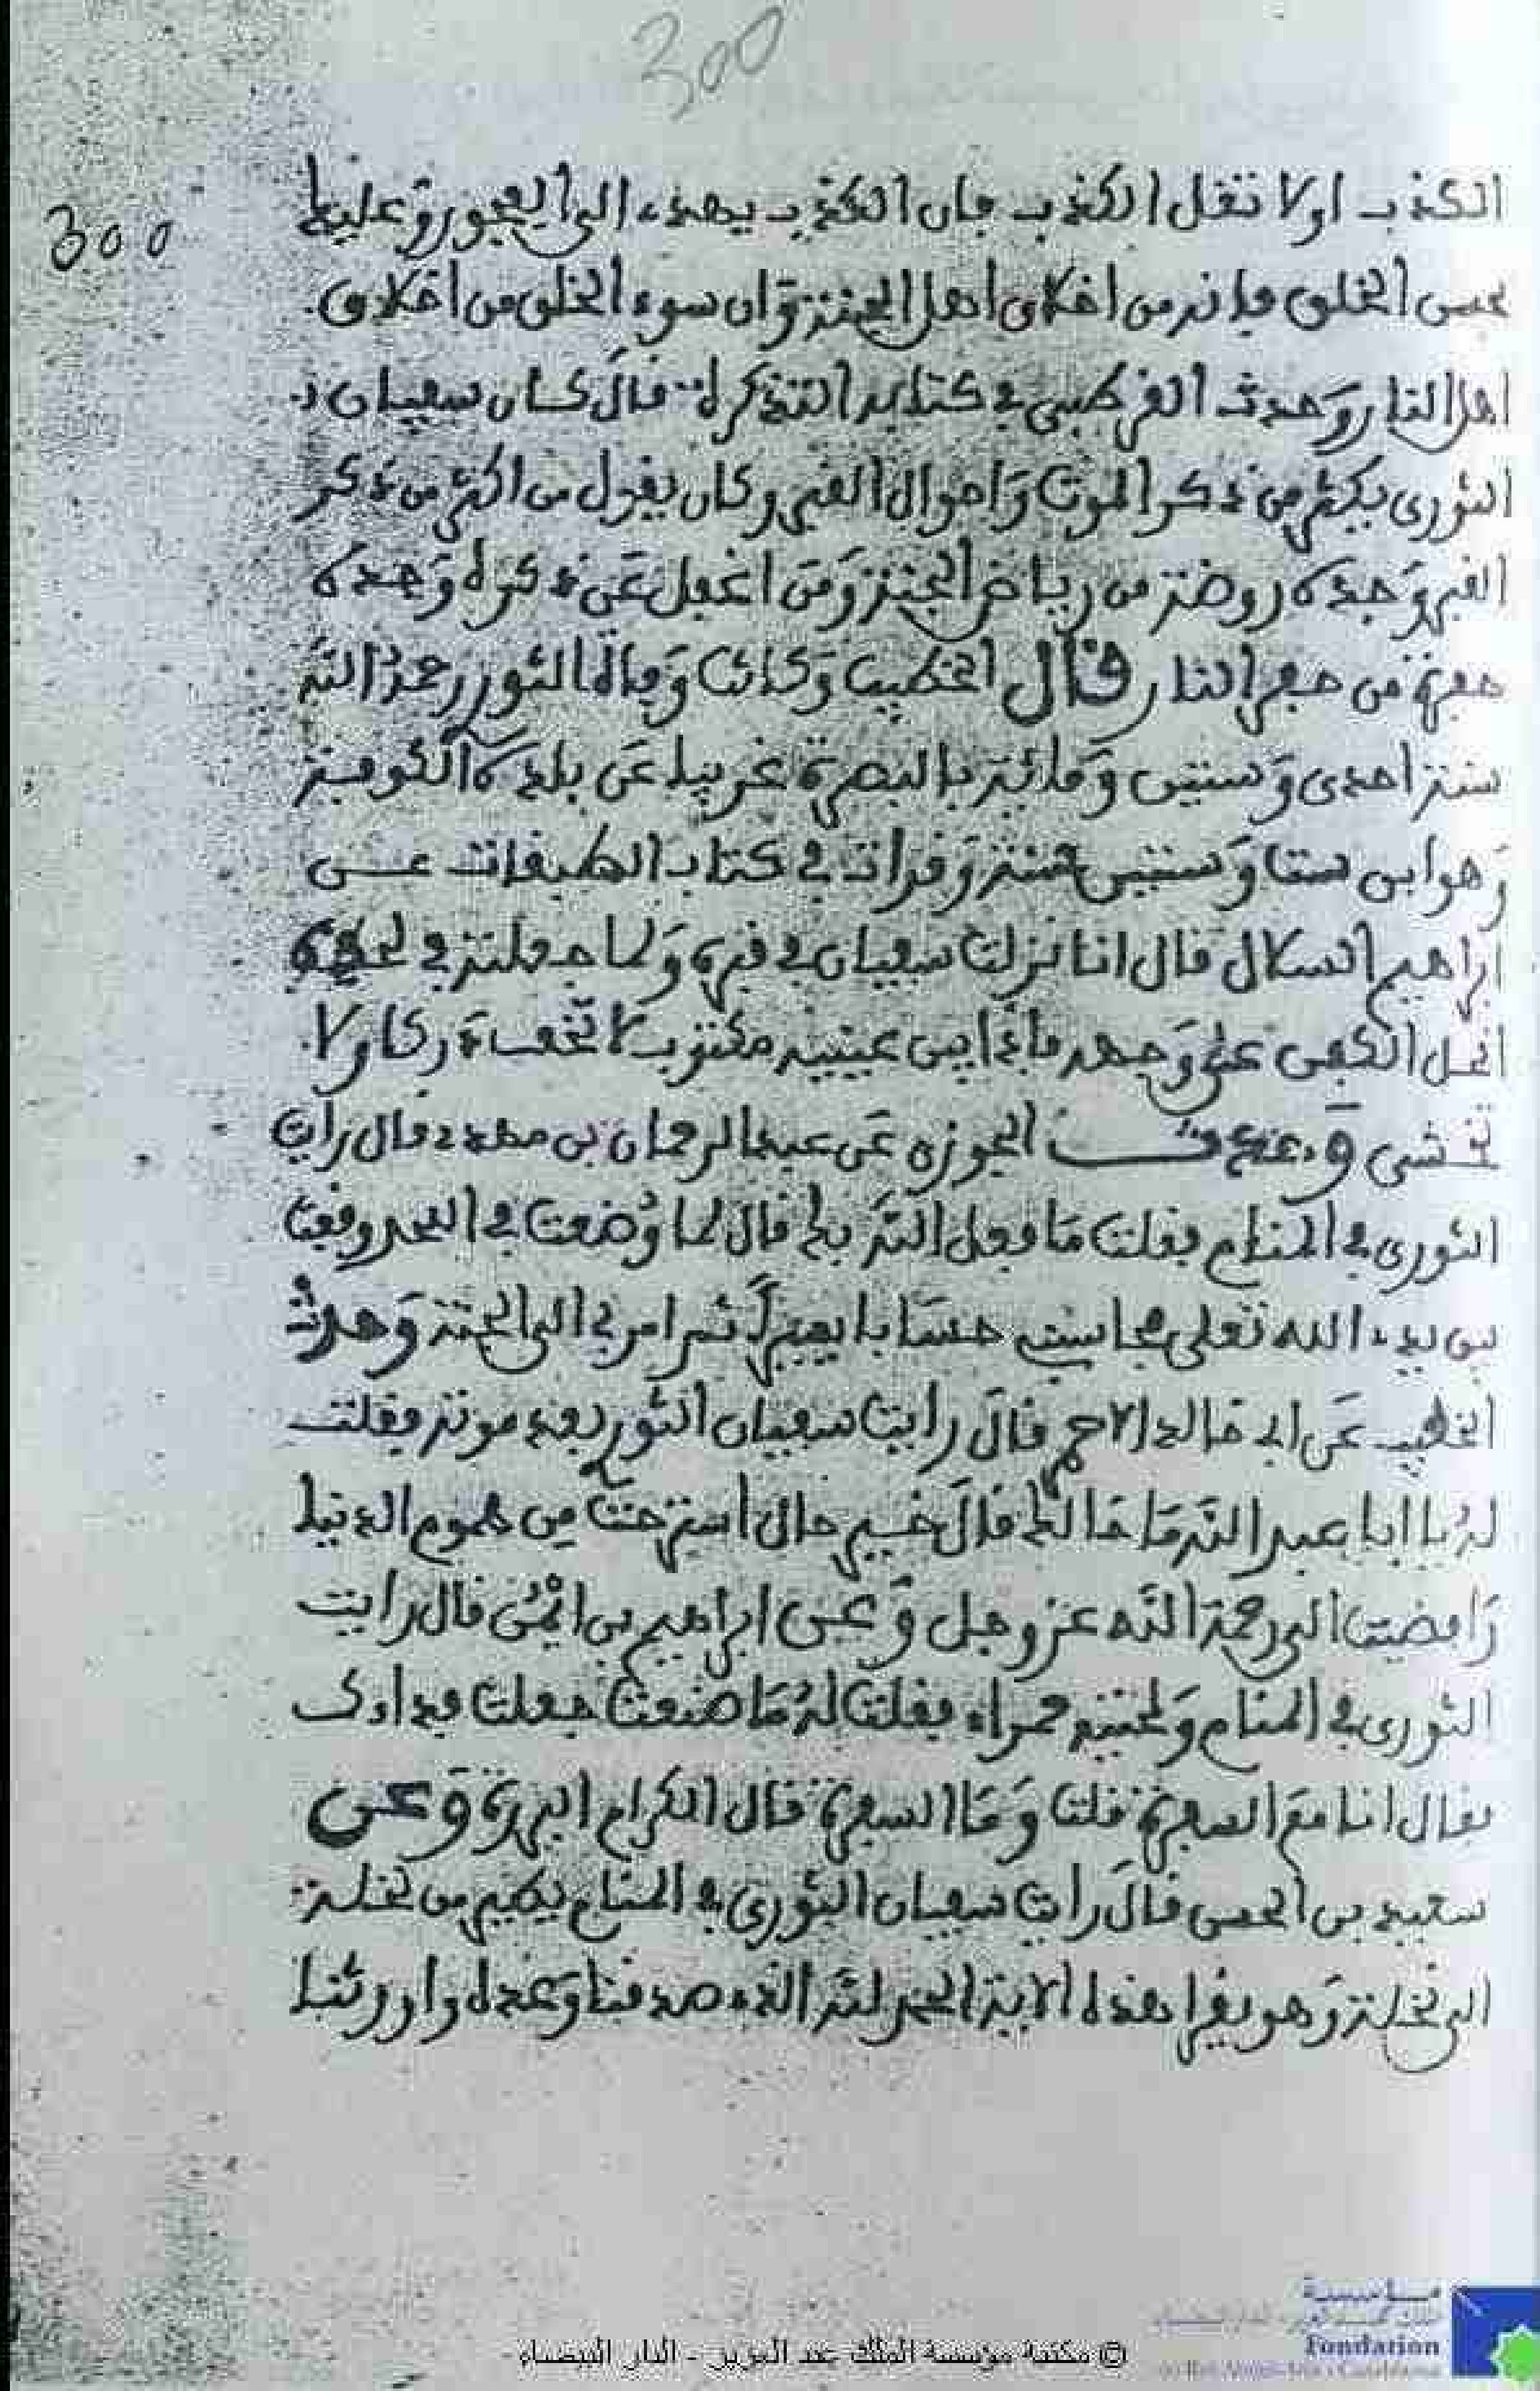 300
300
الكذب اولا تقل الكذب فان الكذب يهدى الى الفجور وعليك
بحسن الخلق فانه من اخلاق اهل الجنة وان سوء الخلق من اخلاق
اهل النار وحدث القرطبي في كتابه التذكرة قال كان سفيان
الثورى يكثر من ذكر الموت واهوال القبر وكان يقول من اكثر من ذكر
القبر وجده روضة من رياض الجنة ومن اغفل عن ذكراه وجده
حفرة من حفر النار قال الخطيب وكانت وفاة الثورى رحمه الله
سنة احدى وستين ومائة بالبصرة غريبا عن بلده الكوفة
وهو ابن ستا وستين سنة وقرات في كتاب الطبقات عن
ابراهيم السلال قال انا نزلت سفيان في قبره ولما جعلته في لحده
انحل الكفن على وجهه فاذا بين عينيه مكتوب لا تخف دركا ولا
تخشى و الجوزى عن عبد الرحمان بن مهدى قال رايت
الثورى في المنام فقلت ما فعل الله بك قال لما وضعت في اللحد وقفت
بين يدى الله تعلى فحاسبني حسابا يسيرا ثم امر بي الى الجنة وحدث
الخطيب عن ابى خالد الاحمر قال رايت سفيان الثورى بعد موته فقلت
له يا ابا عبد الله ما حالك قال خير حال استرحت من هموم الدنيا
وافضيت الى رحمة الله عز وجل وعن ابراهيم بن اعين قال رايت
الثورى في المنام ولحيته حمراء فقلت له ما صنعت جعلت فداوك
فقال انا مع السفرة قلت وما السفرة قال الكرام البررة وعن
سعيد بن الحسن قال رايت سفيان الثورى في المنام يطير من نخلة
الى نخلة وهو يقرا هذه الاية الحمد لله الذى صدقنا وعده واورثنا
© مكتبة مؤسسة الملك عبد العزيز - الدار البيضاء
Fondation